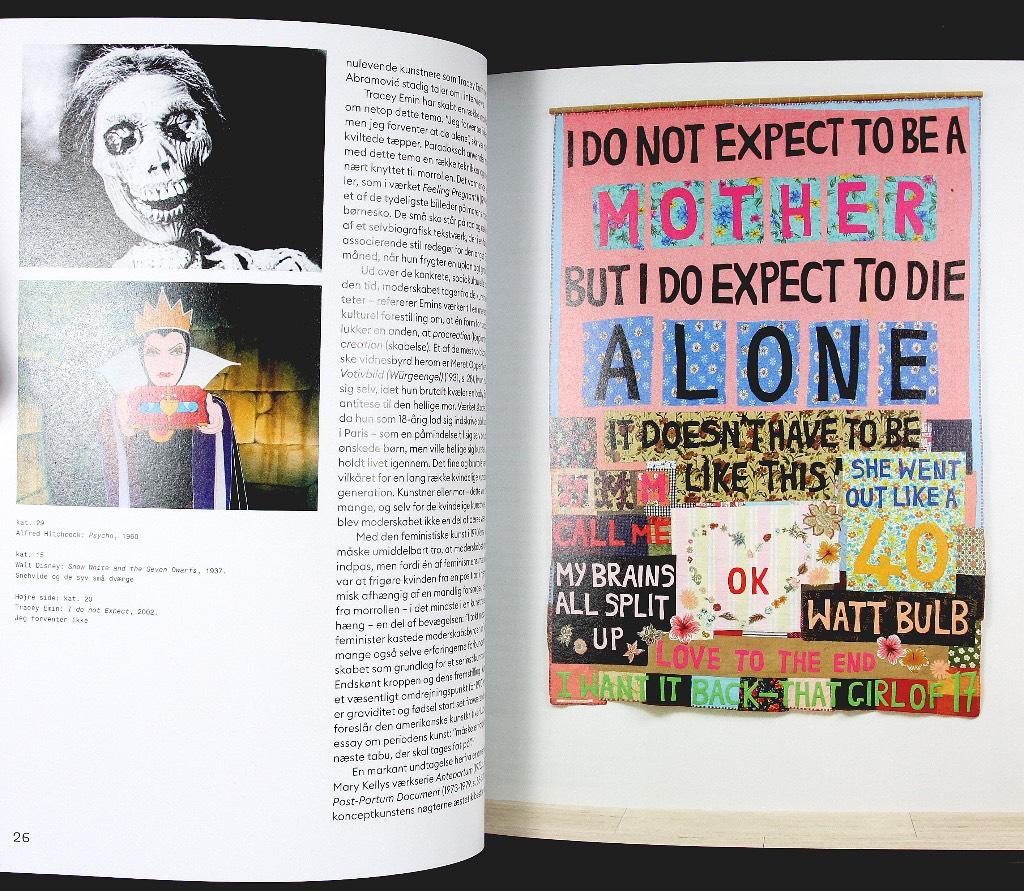 kat. 29
Alfred Hitchcock: Psycho, 1960
kat. 15
Walt Disney: Snow White and the Seven Dwarfs, 1937.
Snehvide og de syv små dværge
Højre side: kat. 20
Tracey Emin: I do not Expect, 2002.
Jeg forventer ikke
26
nulevende kunstnere som Tracey
Abramović stadig taler om i
Tracey Emin har skabt en række
om netop dette tema. "Jeg forventer
men jeg forventer at dø alene", skriver
kviltede tæpper. Paradoksalt
med dette tema en række teknikker
nært knyttet til morrollen. Det
ler, som i værket Feeling Pregnant
et af de tydeligste billeder på
børnesko. De små sko står på
af et selvbiografisk tekstværk, der i en
associerende stil redegør for den
måned, når hun frygter en uplanlagt
Ud over de konkrete,
den tid, moderskabet tager fra de
teter – refererer Emins værker til en
kulturel forestilling om, at én form for
lukker en anden, at procreation
creation (skabelse). Et af de mest
ske vidnesbyrd herom er Meret Oppenheims
Votivbild (Würgeengel)
sig selv, idet hun brutalt kvæler en baby,
antitese til den hellige mor. Værket
da hun som 18-årig lod sig indskrive
i Paris – som en påmindelse til sig selv
ønskede børn, men ville hellige sig
holdt livet igennem. Det
vilkåret for en lang række kvindelige
generation. Kunstner eller mor – dette
mange, og selv for de kvindelige kunstnere
blev moderskabet ikke en del af deres
Med den feministiske kunst i 1970'erne
måske umiddelbart tro, at moderskabet
indpas, men fordi én af feminismens
var at frigøre kvinden fra en position
misk afhængig af en mandlig forsørger
fra morrollen – i det mindste i en
hæng – en del af bevægelsen:
feminister kastede moderskabsbyrden
mange også selve erfaringerne
skabet som grundlag for et seriøst
Endskønt kroppen og dens fremstilling
et væsentligt omdrejningspunkt for
er graviditet og fødsel stort set fraværende
foreslår den amerikanske kunstkritiker
essay om periodens kunst: "måske
næste tabu, der skal tages fat på"
En markant undtagelse herfra er
Mary Kellys værkserie Antepartum
Post-Partum Document (1973-1979,
konceptkunstens nøgterne æstetik
I DO NOT EXPECT TO BE A
MOTHER
BUT I DO EXPECT TO DIE
ALONE
IT DOESN'T HAVE TO BE
LIKE THIS!
MMM
CALL ME
SHE WENT
OUT LIKE A
40
MY BRAINS
ALL SPLIT
UP
OK
WATT BULB
LOVE TO THE END
I WANT IT BACK—THAT GIRL OF 17